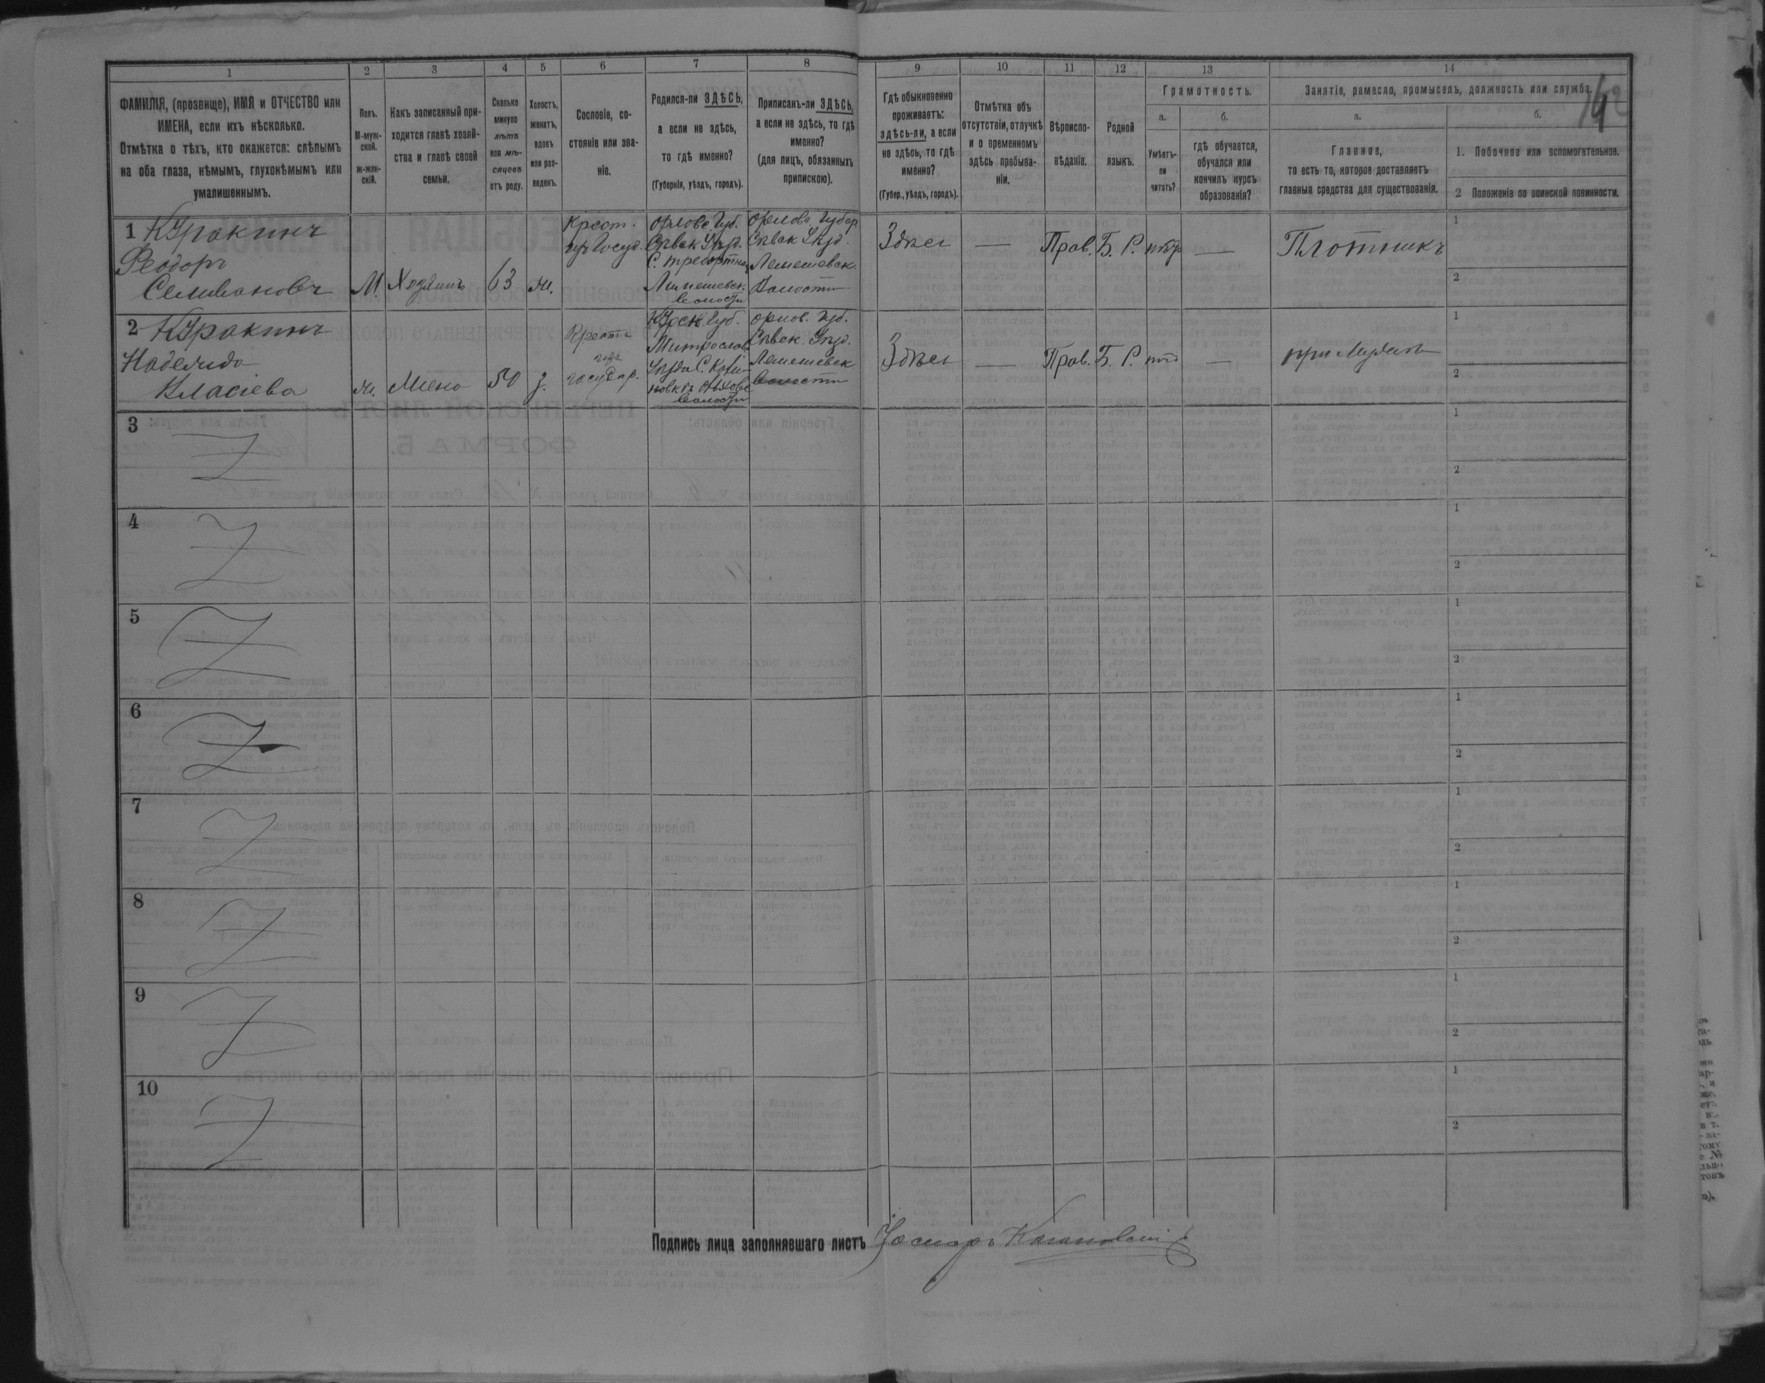 1
2
3
4
5
6
7
8
9
10
11
12
13
14
ФАМИЛІЯ, (прозвище), ИМЯ и ОТЧЕСТВО или
ИМЕНА, если ихъ нѣсколько.
Отмѣтка о тѣхъ, кто окажется: слѣпымъ
на оба глаза, нѣмымъ, глухонѣмымъ или
умалишеннымъ.
Полъ.
М-муж-
ской.
ж-жен-
скій.
Какъ записанный при-
ходится главѣ хозяй-
ства и главѣ своей
семьи.
Сколько
минуло
лѣтъ
или мѣ-
сяцевъ
отъ роду.
Холостъ,
женатъ,
вдовъ
или раз-
веденъ.
Сословіе, со-
стояніе или зва-
ніе.
Родился-ли ЗДѢСЬ,
а если не здѣсь,
то гдѣ именно?
(Губернія, уѣздъ, городъ).
Приписанъ-ли ЗДѢСЬ,
а если не здѣсь, то гдѣ
именно?
(для лицъ, обязанныхъ
припискою).
Гдѣ обыкновенно
проживаетъ:
здѣсь-ли, а если
не здѣсь, то гдѣ
именно?
(Губер., уѣздъ, городъ).
Отмѣтка объ
отсутствіи, отлучкѣ
и о временномъ
здѣсь пребыва-
ніи.
Вѣроиспо-
вѣданіе.
Родной
языкъ.
Грамотность.
а.
Умѣетъ-
ли
читать?
б.
гдѣ обучается,
обучался или
кончилъ курсъ
образованія?
Занятіе, ремесло, промыселъ, должность или служба.
а.
Главное,
то есть то, которое доставляетъ
главныя средства для существованія.
б.
1. Побочное или вспомогательное.
2 Положеніе по воинской повинности.
1 Куракинъ
Феодоръ
Селивановъ
М.
Хозяинъ
63
ж.
Крест.
изъ Госуд.
Орловс Губ.
Сѣвск Уѣзд.
Волости
Орлов. Губер
Сѣвск Уѣзд.
Лемешевск.
Волости
Здѣсь
—
Прав.
Б. Р.
—
Плотникъ
1
2
2 Куракина
Надежда
Власіева
ж.
Жена
50
з.
Крест.
изъ
государ.
Курск. Губ.
Уѣзда С. Кали-
новкѣ
Волости
Орлов. Губ.
Сѣвск. Уѣзд.
Лемешевск
Волости
Здѣсь
—
Прав.
Б. Р.
—
при Мужѣ
1
2
3
1
2
4
1
2
5
1
2
6
1
2
7
1
2
8
1
2
9
1
2
10
1
2
Подпись лица заполнявшаго листъ